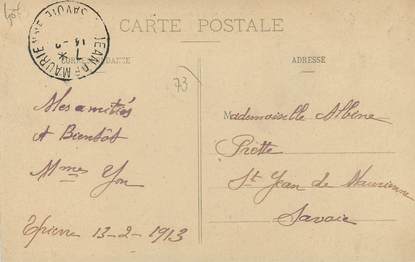 CARTE POSTALE
CORRESPONDANCE
ADRESSE
ST JEAN DE MAURIENNE
SAVOIE
7
14-2
73
Mes amitiés
A Bientôt
Mmes Yon
Epierre 13-2-1913
Mademoiselle Albine
Protte
St Jean de Maurienne
Savoie